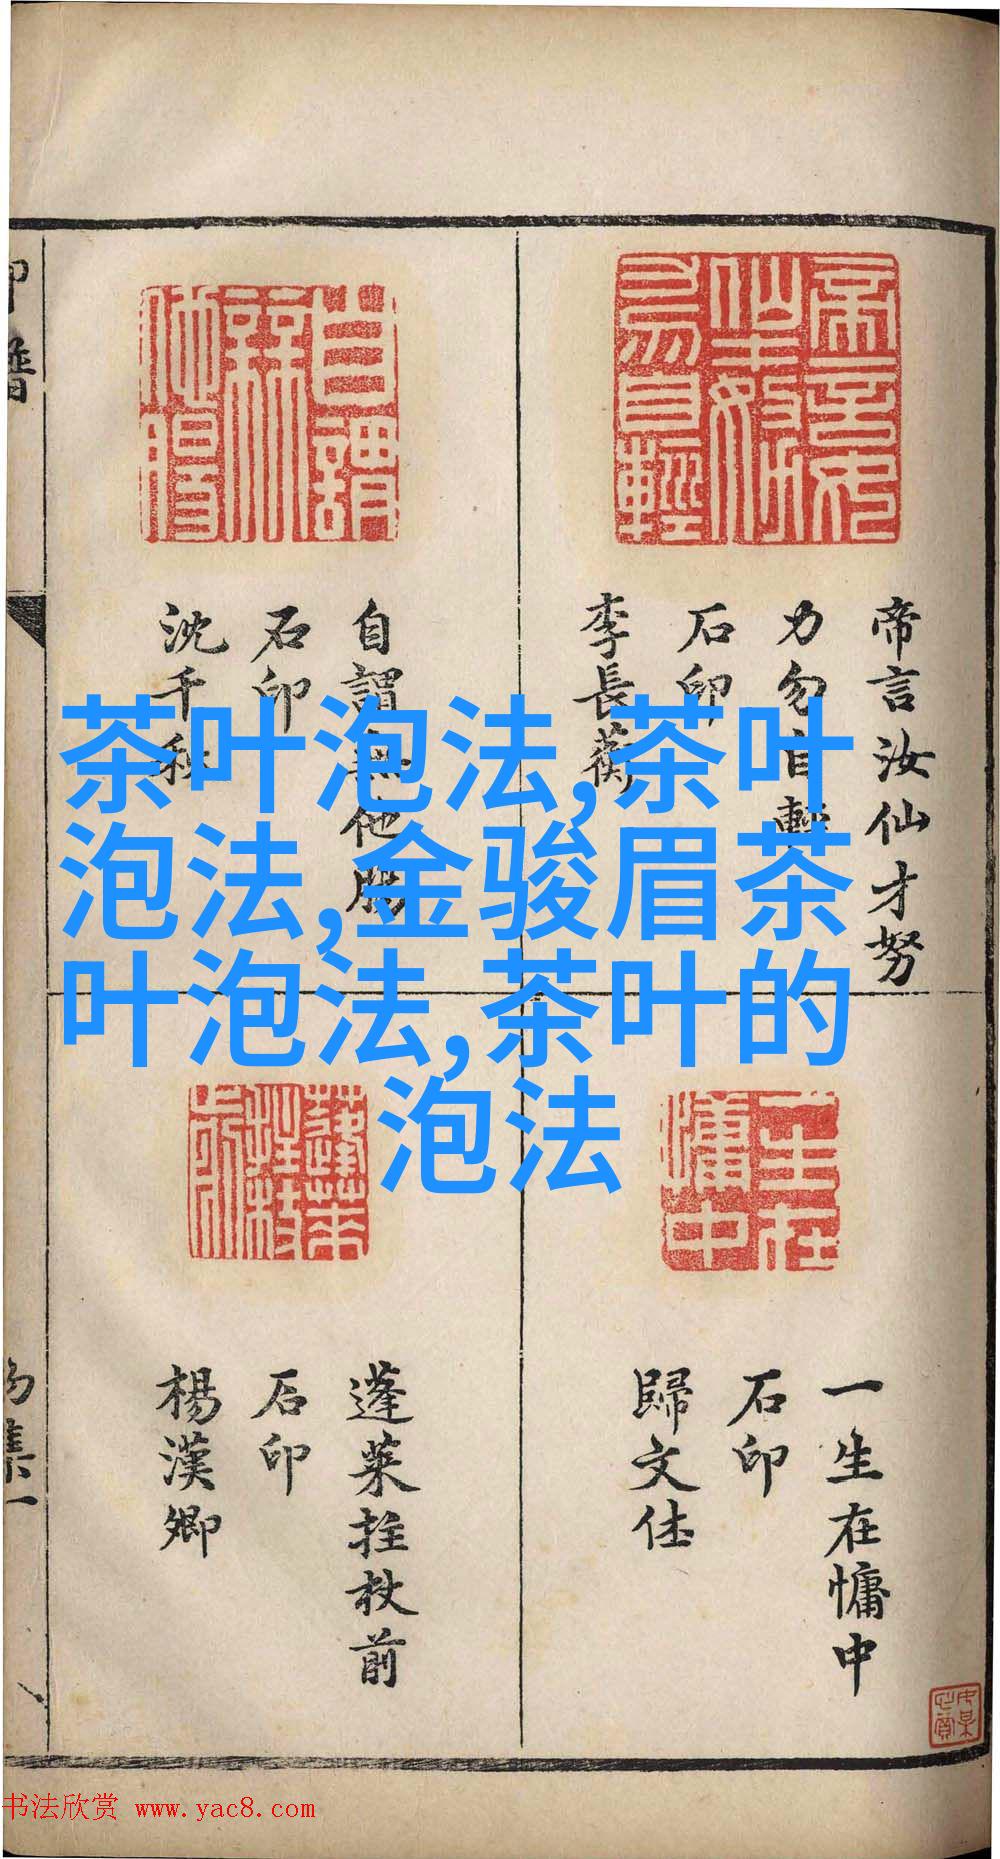 茶叶泡法,茶叶
泡法,金骏眉茶
叶泡法,茶叶的
泡法
帝言汝仙才努
力勿自輕
石印
李長蘅
自謂無他腸
石印
沈千秋
一生在慵中
石印
歸文休
蓬萊拄杖前
石印
楊漢卿
书法欣赏 www.yac8.com